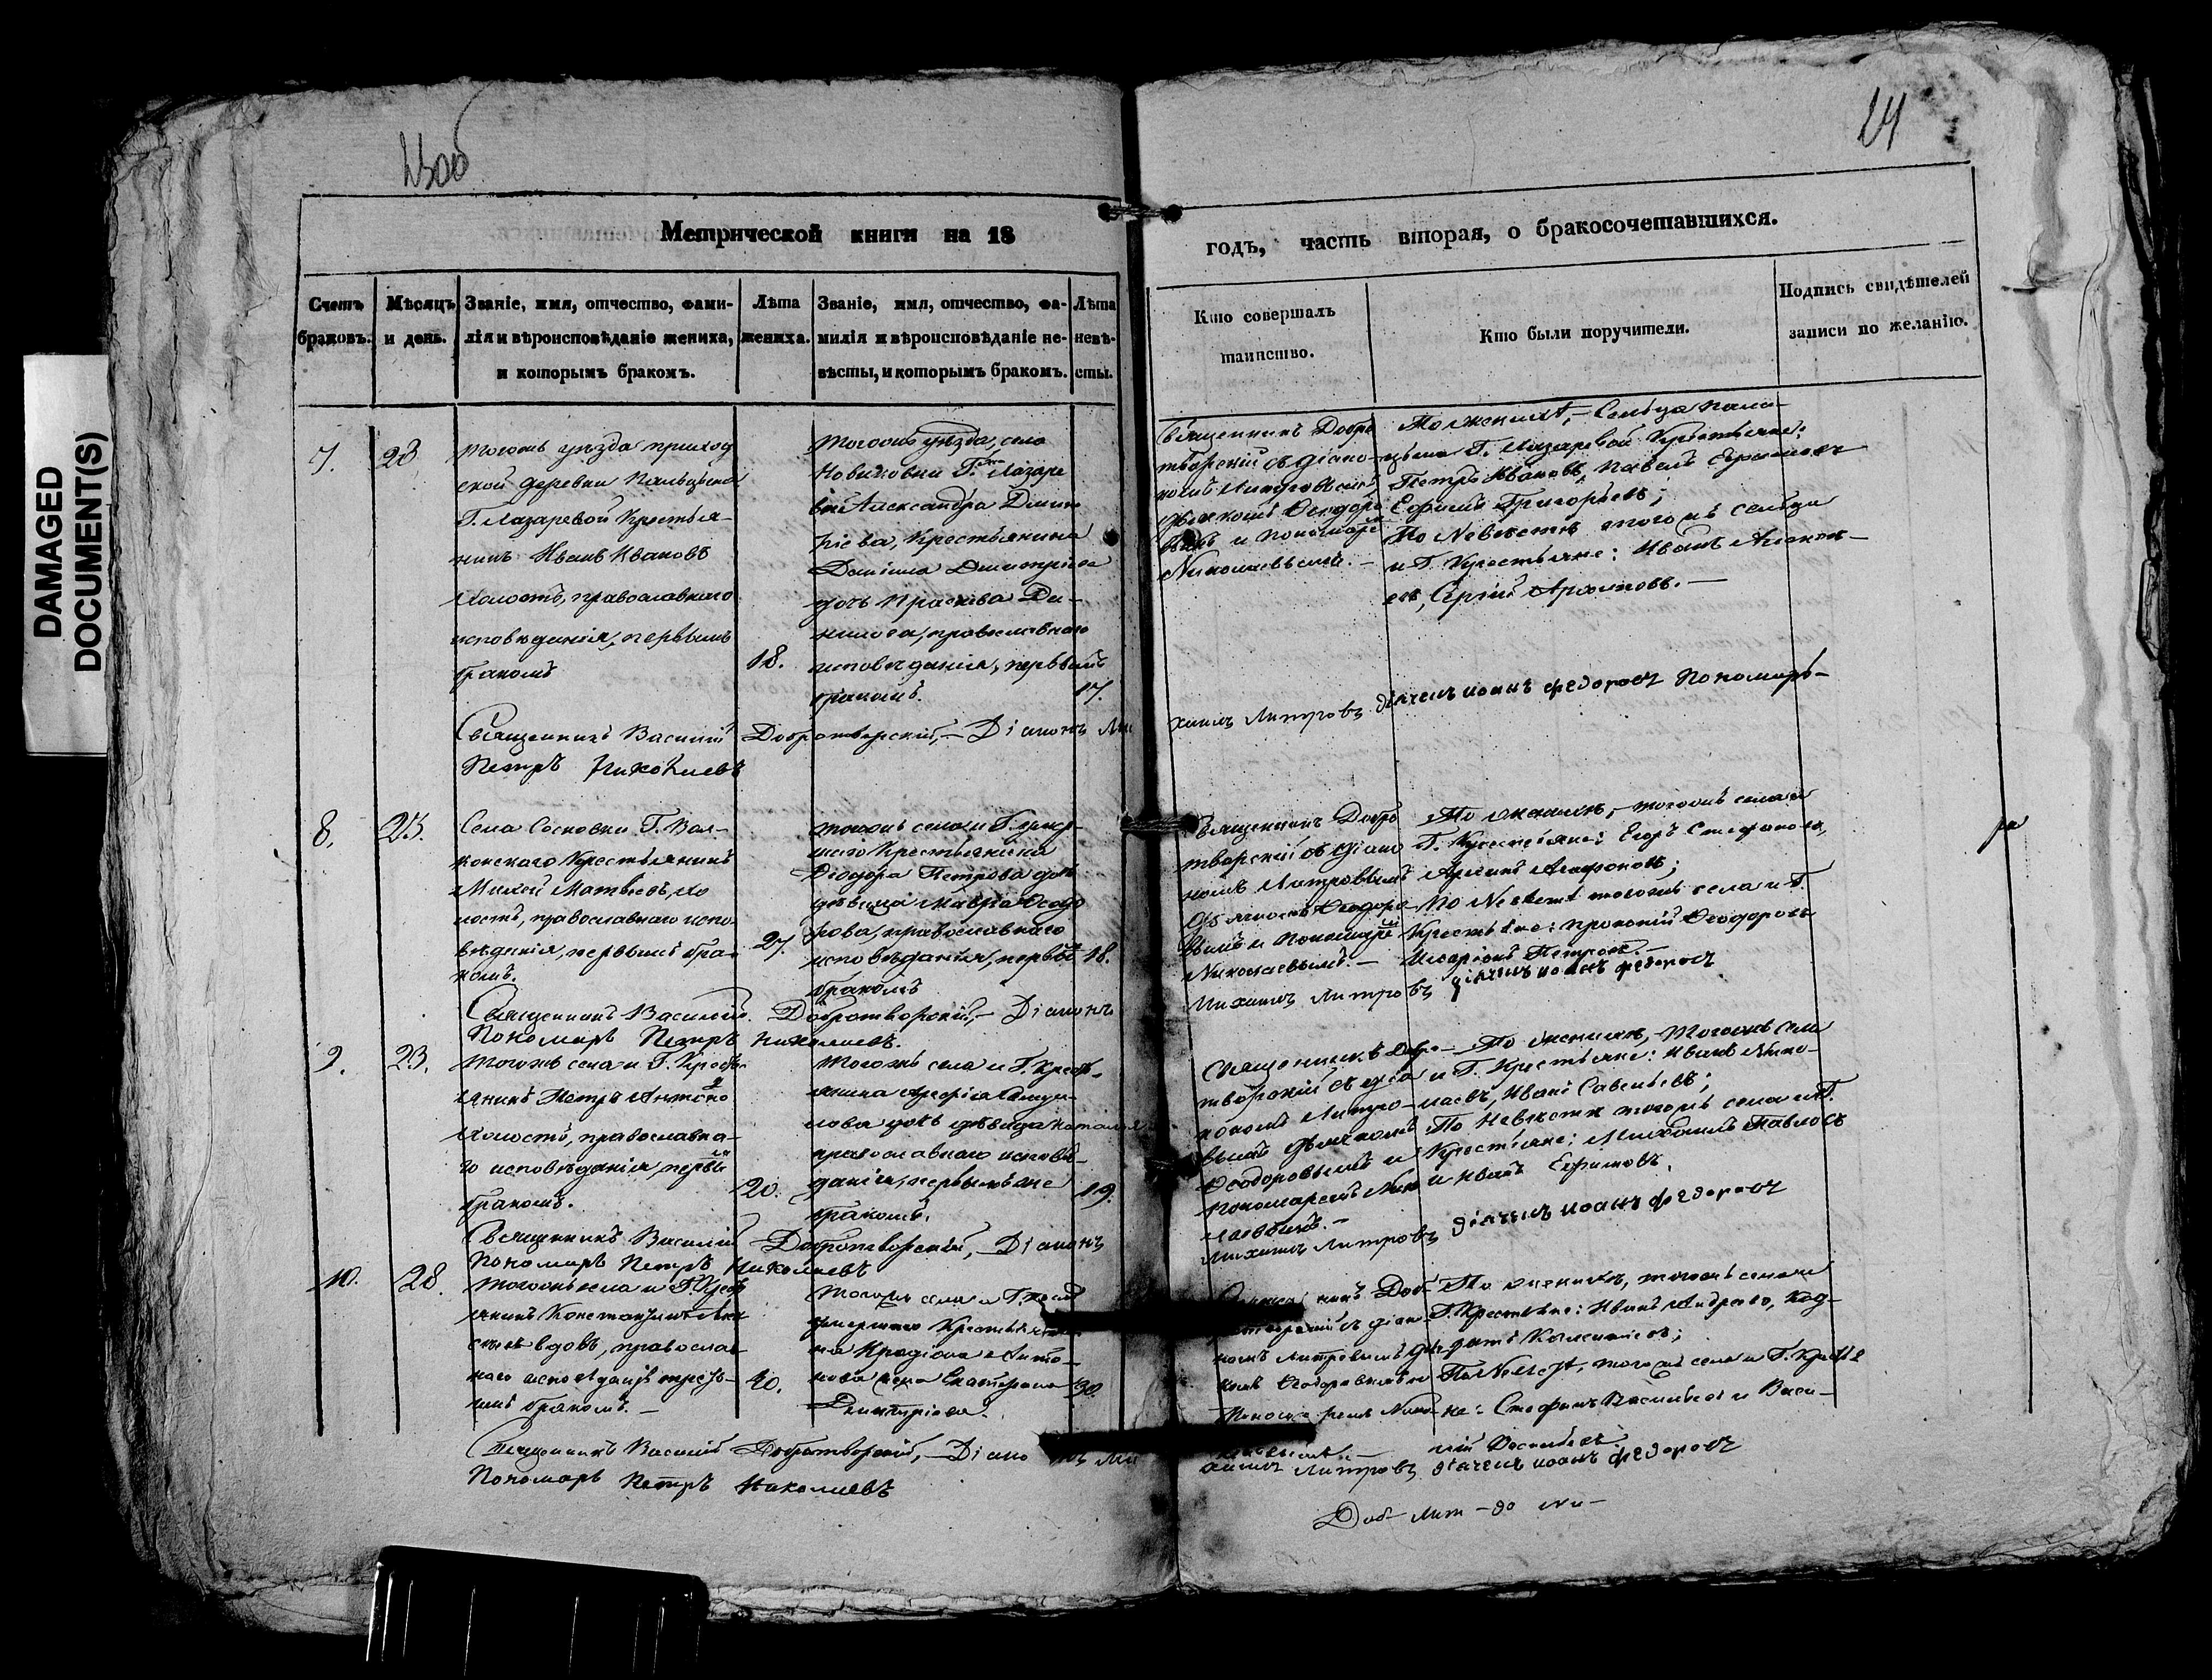 DAMAGED
DOCUMENT(S)
23об
24
Метрической книги на 18
годъ, часть вторая, о бракосочетавшихся.
Счетъ
браковъ.
Мѣсяцъ
и день.
Званіе, имя, отчество, фами-
лія и вѣроисповѣданіе жениха,
и которымъ бракомъ.
Лѣта
жениха.
Званіе, имя, отчество, фа-
милія и вѣроисповѣданіе не-
вѣсты, и которымъ бракомъ.
Лѣта
невѣ-
сты.
Кто совершалъ
таинство.
Кто были поручители.
Подпись свидѣтелей
записи по желанію.
7.
23
тогожъ уѣзда приход
ской деревни Пальцына
Г. Лазаревой крестья-
нинъ Иванъ Ивановъ
холостъ, православнаго
исповѣданія, первымъ
бракомъ
18.
тогожъ уѣзда, села
Новиковки Г. Лазаре
вой Александра Дмит
ріева, крестьянина
Даніила Дмитріева
дочь Праскева Да-
нилова, православнаго
исповѣданія, первымъ
бракомъ.
17.
Священникъ Добро
творскій съ діако-
номъ
дьячкомъ Феодоро
вымъ и пономаремъ
Николаевымъ.-
По женихѣ,- Сельца Паль-
цына Г. Лазаревой крестьяне:
Петръ Ивановъ, Павелъ
Ефимъ Григорьевъ;
По Невѣстѣ тогожъ сельца
и Г. Крестьяне: Иванъ
Сергій Архиповъ.-
Священникъ Василій Добротворскій,- Діаконъ Ми
хаилъ Литровъ дьячекъ иоанъ федоровъ Пономарь-
Петръ Николаевъ
8.
23.
Села Сосновки Г. Вол-
конскаго крестьянинъ
Матвѣевъ, хо
лостъ, православнаго испо-
вѣданія, первымъ бра-
комъ.
27.
тогожъ села и Г. умер-
шаго крестьянина
Феодора Петрова дочь
дѣвица Мавра Феодо
рова, православнаго
исповѣданія, первымъ
бракомъ
18.
Священникъ Добро
творскій съ діако
номъ Литровымъ
дьячкомъ Феодоро
вымъ и пономаремъ
Николаевымъ.-
По женихѣ,- тогожъ села и
Г. Крестьяне: Егоръ Стефановъ,
По Невѣстѣ тогожъ села и Г.
Крестьяне: Прокопій Феодоровъ
Иларіонъ Петровъ.-
Священникъ Василій Добротворскій,- Діаконъ
Михаилъ Литровъ дьячекъ иоанъ федоровъ
Пономарь Петръ Николаевъ.
9.
23.
тогожъ села и Г. Крестья
янинъ Петръ Антоновъ
холостъ, православна-
го исповѣданія, первымъ
бракомъ.
20.
тогожъ села и Г. Крест-
янина
дочь дѣвица Наталія
православнаго исповѣ-
данія, первымъ же
бракомъ.
19.
Священникъ Добро-
творскій съ діа
кономъ Литро-
вымъ дьячкомъ
Феодоровымъ и
пономаремъ Нико
лаевымъ.-
По женихѣ,- Тогожъ села
и Г. Крестьяне: Иванъ Нико-
лаевъ, Иванъ Савельевъ;
По Невѣстѣ тогожъ села и Г.
Крестьяне: Михаилъ Павловъ
и Иванъ Ефимовъ.
Священникъ Василій Добротворскій,- Діаконъ
Михаилъ Литровъ дьячекъ иоанъ федоровъ
Пономарь Петръ Николаевъ
10.
28.
Тогожъ села и Г. Крест
янинъ Константинъ
вдовъ, православ
наго исповѣданія треть-
имъ бракомъ.-
40.
тогожъ села и Г.
умершаго Крестьяни
на Антo-
нова жена Екатерина
Дмитріева.
30.
никъ Доб-
ротворскій съ діако
номъ Литровымъ дья-
комъ Феодоровымъ и
Пономаремъ Нико-
лаевымъ.-
По женихѣ, тогожъ села и
Г. Крестьяне: Иванъ Андреевъ,
По Невѣстѣ, тогожъ села и Г. Кресть
не: Стефанъ Васильевъ и Васи-
лій
Священникъ Василій Добротворскій,- Діаконъ Ми
хаилъ Литровъ дьячекъ иоанъ федоровъ
Пономарь Петръ Николаевъ
Доб- Лит-